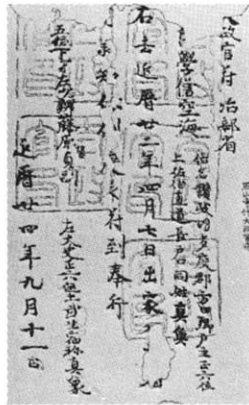 太政官符 治部省
學僧空海
俗名讃岐国多度郡方田郷戸主正六位
上佐伯直道長戸口同姓真魚
右去延暦廿二年四月七日出家
承知
符到奉行
五位下守左少辨藤原貞副
左大史正六位上武生宿祢真象
延暦廿四年九月十一日